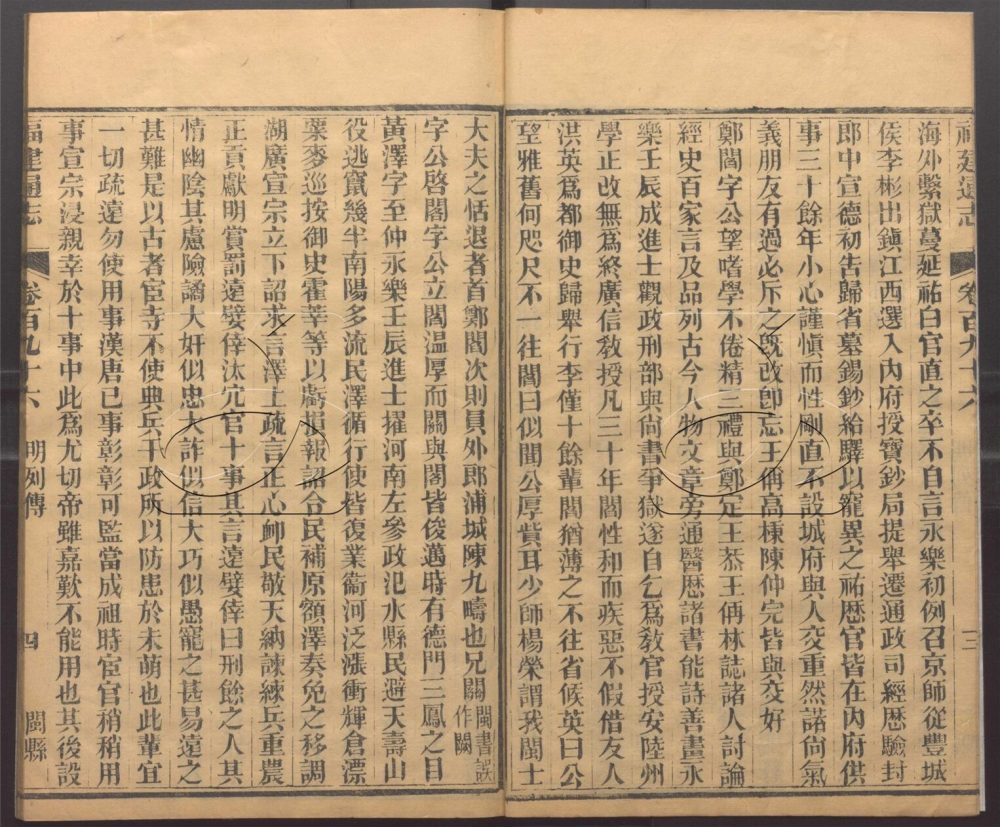 福建通志 卷百九十六 三
海外繫獄蔓延祐白官直之卒不自言永樂初例召京師從豐城
侯李彬出鎮江西選入內府授寶鈔局提舉遷通政司經歷驗封
郎中宣德初告歸省墓錫鈔給驛以寵異之祐歷官皆在內府供
事三十餘年小心謹愼而性剛直不設城府與人交重然諾尙氣
義朋友有過必斥之旣改卽忘王偁高棅陳仲完皆與交好
鄭閻字公望嗜學不倦精三禮與鄭定王恭王偁林誌諸人討論
經史百家言及品列古今人物文章旁通醫歷諸書能詩善畫永
樂壬辰成進士觀政刑部與尙書爭獄遂自乞爲敎官授安陸州
學正改無爲終廣信敎授凡三十年閻性和而疾惡不假借友人
洪英爲都御史歸舉行李僅十餘輩閻猶薄之不往省候英曰公
望雅舊何咫尺不一往閻曰似聞公厚貲耳少師楊榮謂我閩士
大夫之恬退者首鄭閻次則員外郎浦城陳九疇也兄關閩書誤作闕
字公啓閣字公立閣温厚而關與閣皆俊邁時有德門三鳳之目
黃澤字至仲永樂壬辰進士擢河南左參政汜水縣民避天壽山
役逃竄幾半南陽多流民澤循行使皆復業衞河泛漲衝輝倉漂
粟麥巡按御史霍莘等以虧損報詔合民補原額澤奏免之移調
湖廣宣宗立下詔求言澤上疏言正心䘏民敬天納諫練兵重農
正貢獻明賞罰遠嬖倖汰宂官十事其言遠嬖倖曰刑餘之人其
情幽陰其慮險譎大奸似忠大詐似信大巧似愚寵之甚易遠之
甚難是以古者宦寺不使典兵干政所以防患於未萌也此輩宜
一切疏遠勿使用事漢唐已事彰彰可監當成祖時宦官稍稍用
事宣宗浸親幸於十事中此爲尤切帝雖嘉歎不能用也其後設
福建通志 卷百九十六 明列傳 四 閩縣